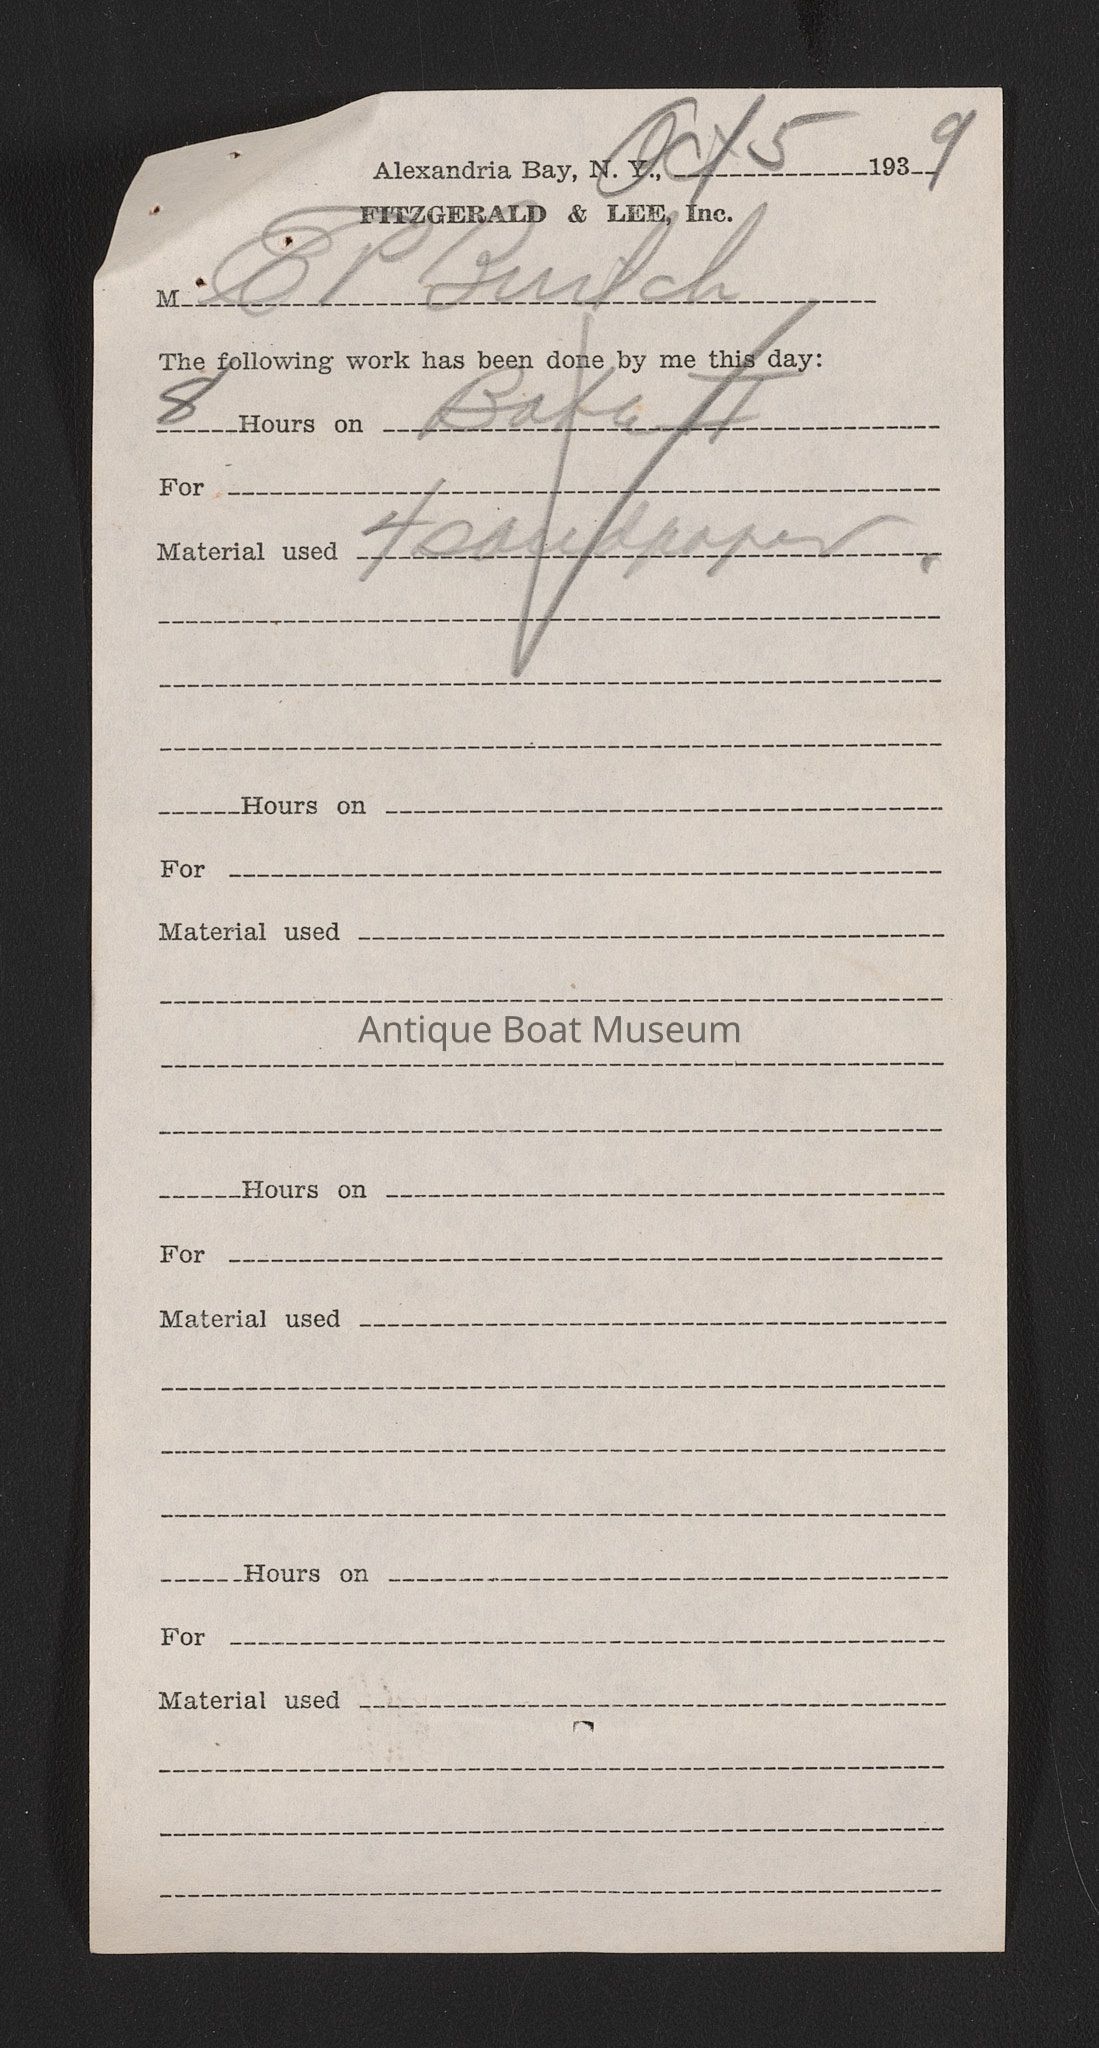 Alexandria Bay, N. Y., Oct 5 1939
FITZGERALD & LEE, Inc.
M E P
The following work has been done by me this day:
8 Hours on II
For
Material used 4 sandpaper.
Hours on
For
Material used
Antique Boat Museum
Hours on
For
Material used
Hours on
For
Material used